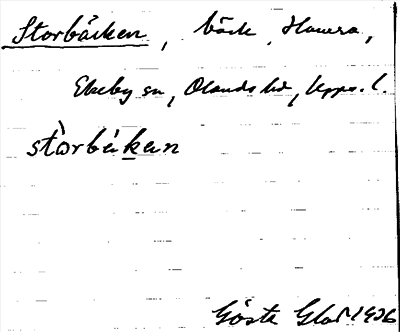 Storbäcken, bäck, Hanera,
Ekeby sn, Olands hd, Upps. l.
stòrbákan
Gösta Glas 1936